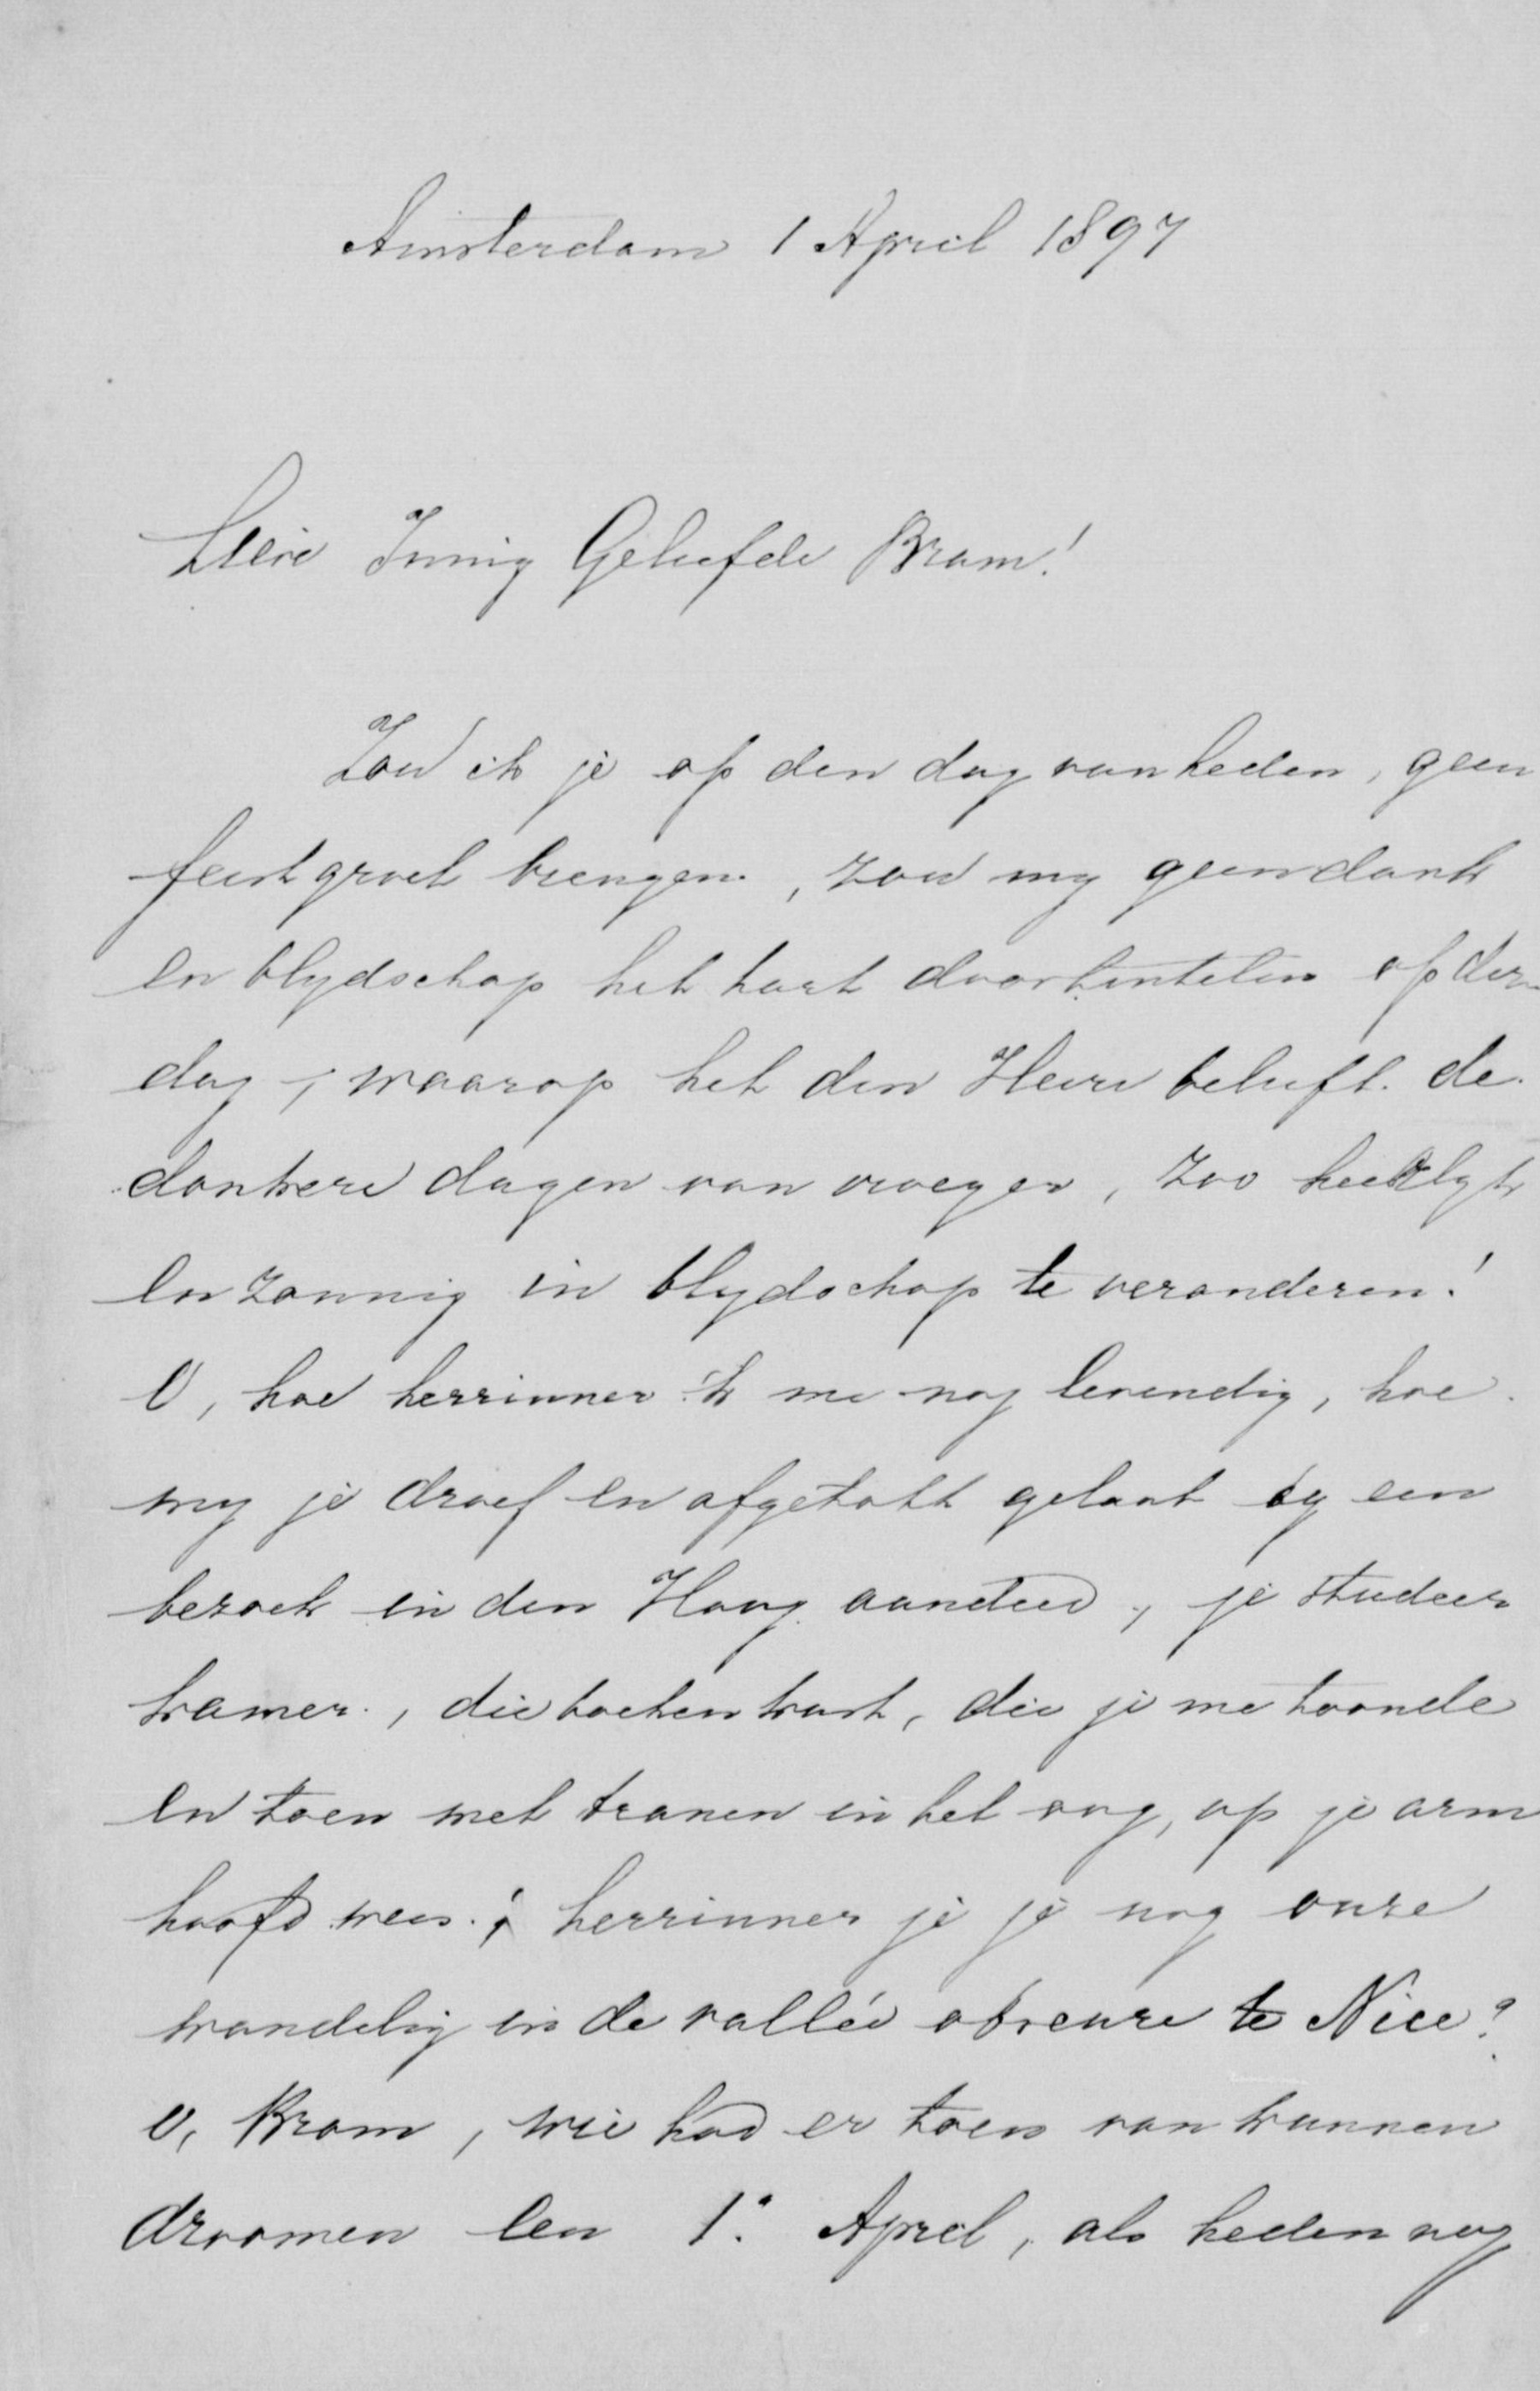 Amsterdam 1 April 1897
Lieve Innig Geliefde Bram!
Zou ik je op den dag van heden, geen
feestgroet brengen, zou my geen dank
en blydschap het hart doortintelen op den
dag, waarop het den Heere belieft de
donkere dagen van vroeger, zoo heerlyk
en zonnig in blydschap te veranderen!
O, hoe herrinner ik me nog levendig, hoe
my je droef en afgetobt gelaat by een
bezoek in den Haag aandeed, je studeer
kamer, die boekenkast, die je me toonde
en toen met tranen in het oog, op je arm
hoofd wees; herrinner je je nog onze
wandelig in de vallée obscure te Nice?
O, Bram, wie had er toen van kunnen
droomen een 1e April, als heden nog